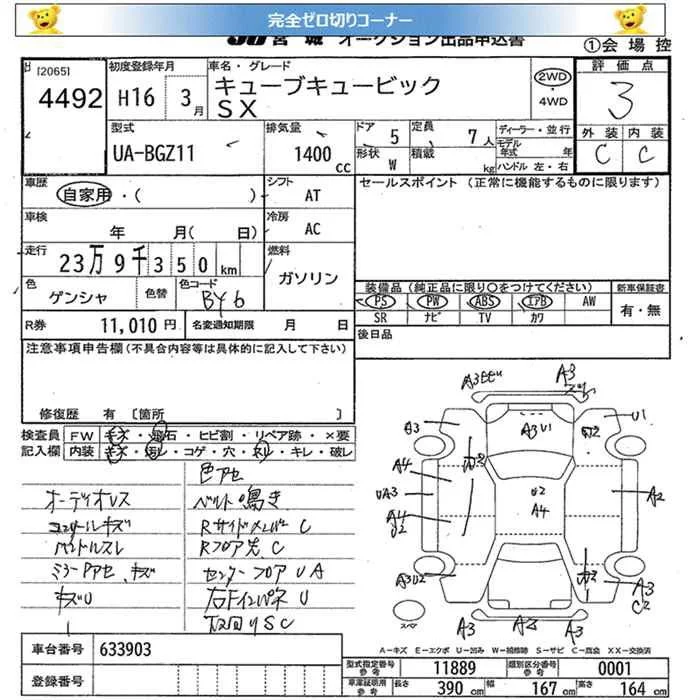 完全ゼロ切りコーナー
JU宮城 オークション出品申込書
①会場控
[2065]
4492
初度登録年月
H16 3月
車名・グレード
キューブキュービック
SX
2WD
・
4WD
評価点
3
外装 内装
C C
型式
UA-BGZ11
排気量
1400cc
ドア 5
形状 W
定員 7人
積載 kg
ディーラー・並行
モデル年式 年
ハンドル 左・右
車歴
自家用・( )
シフト AT
セールスポイント (正常に機能するものに限ります)
車検
年 月(日)
冷房 AC
走行
23万9千350km
燃料
ガソリン
色
ゲンシャ
色替
色コード
BY6
装備品(純正品に限り○をつけてください)
PS PW ABS エアB AW
SR ナビ TV カワ
新車保証書
有・無
R券 11,010円
名変通知期限 月 日
後日品
注意事項申告欄(不具合内容等は具体的に記入して下さい)
修復歴 有 〔箇所 〕
検査員
記入欄
FW キズ・飛石・ヒビ割・リペア跡・×要
内装 キズ・汚レ・コゲ・穴・ネレ・キレ・破レ
色アセ
オーディオレス
ベルト鳴き
コンソールキズ
RサイドメンバーC
ハンドルスレ
Rフロア先C
ミラーアセ、キズ
センターフロアUA
キズU
右FインパネU
下回りSC
A3
A3
A3
A3U1
U1
A4
UA3
A4
U2
U2
A4
A2
A3U2
A3
C2
A3
A3
A3
スペア
A-キズ E-エクボ U-凹み W-補修跡 S-サビ C-腐食 XX-交換済
車台番号 633903
登録番号
型式指定番号 参考 11889
類別区分番号 参考 0001
車庫証明用 参考 長さ 390cm 幅 167cm 高さ 164cm